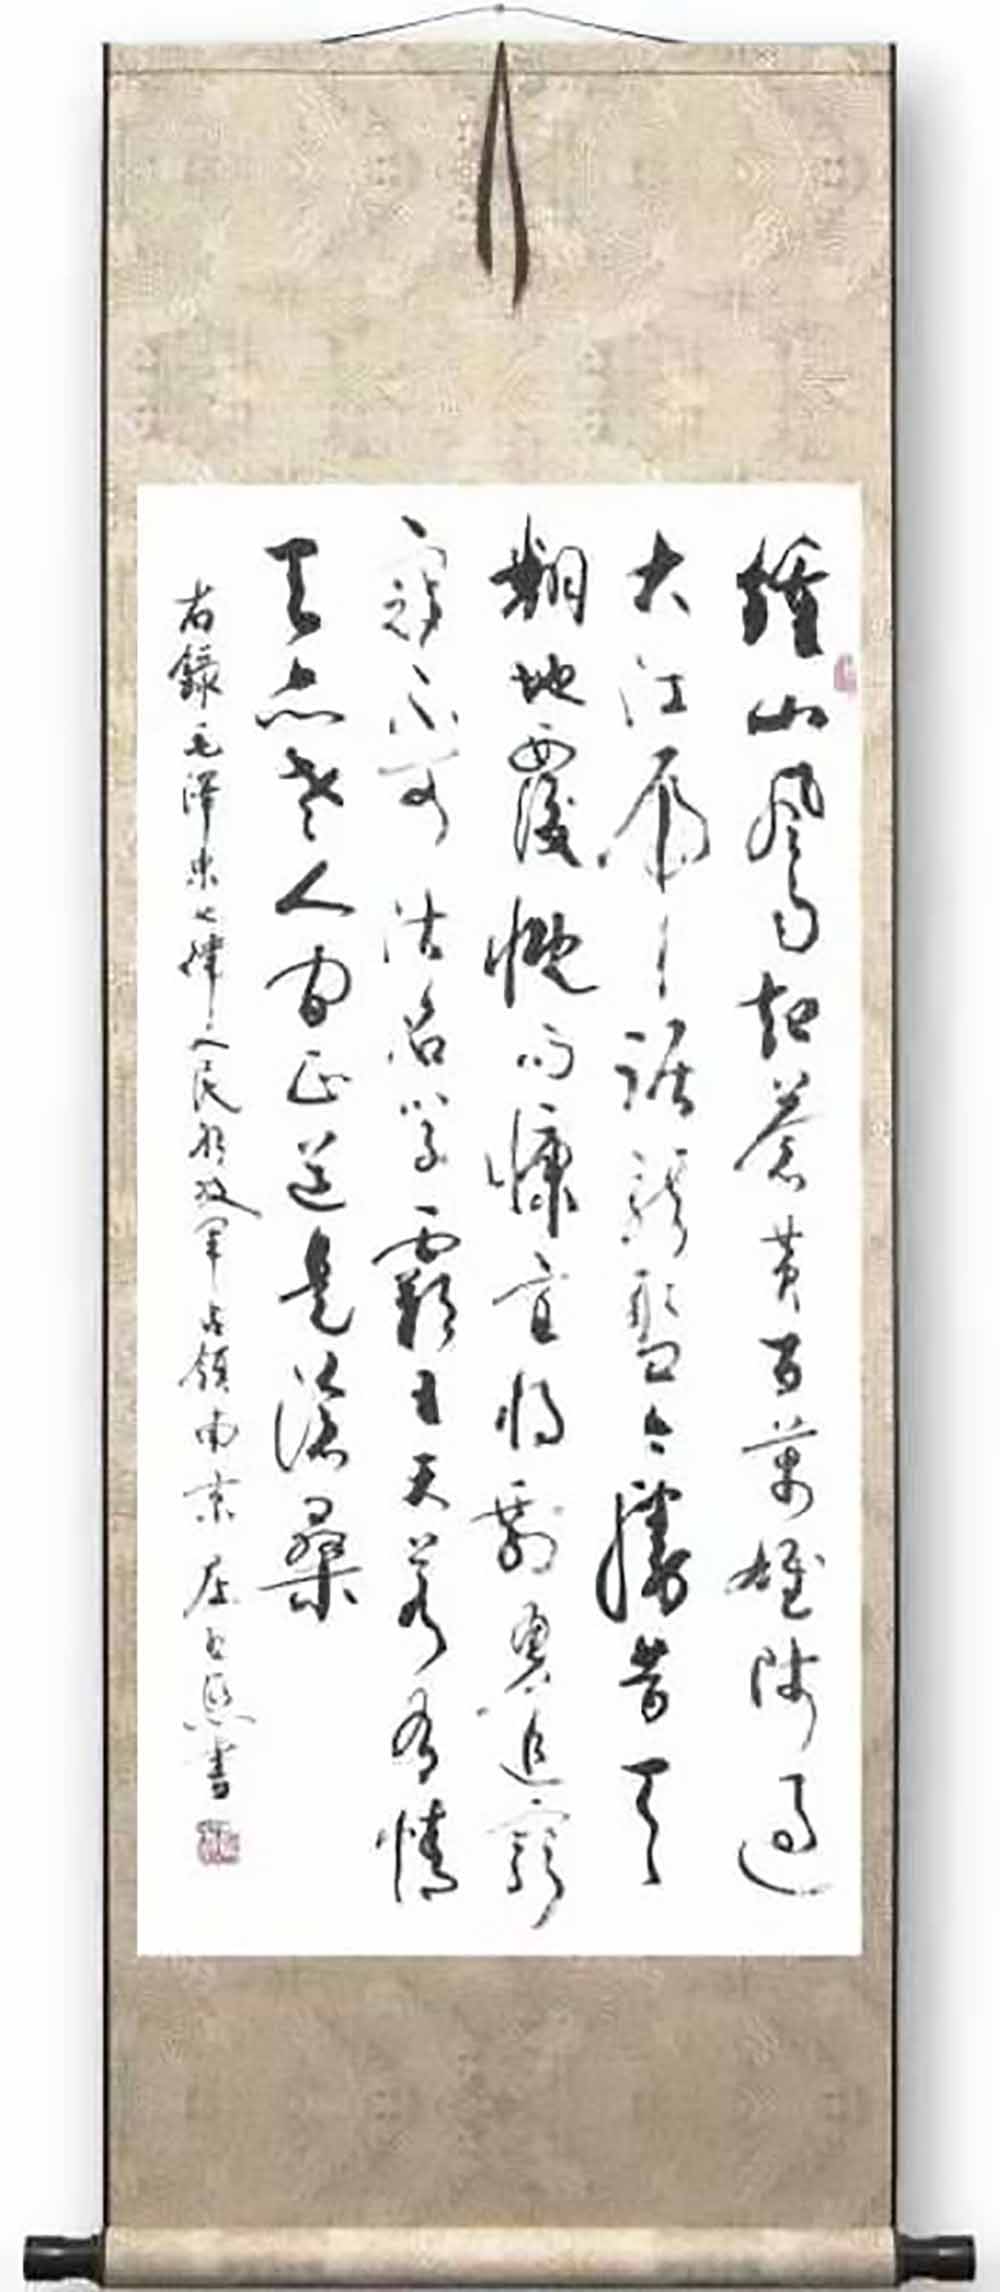 鍾山風雨起蒼黄百萬雄師過
大江虎踞龍盤今勝昔天
翻地覆慨而慷宜将剩勇追窮
寇不可沽名学霸王天若有情
天亦老人间正道是滄桑
右録毛泽东七律人民解放军占領南京 書